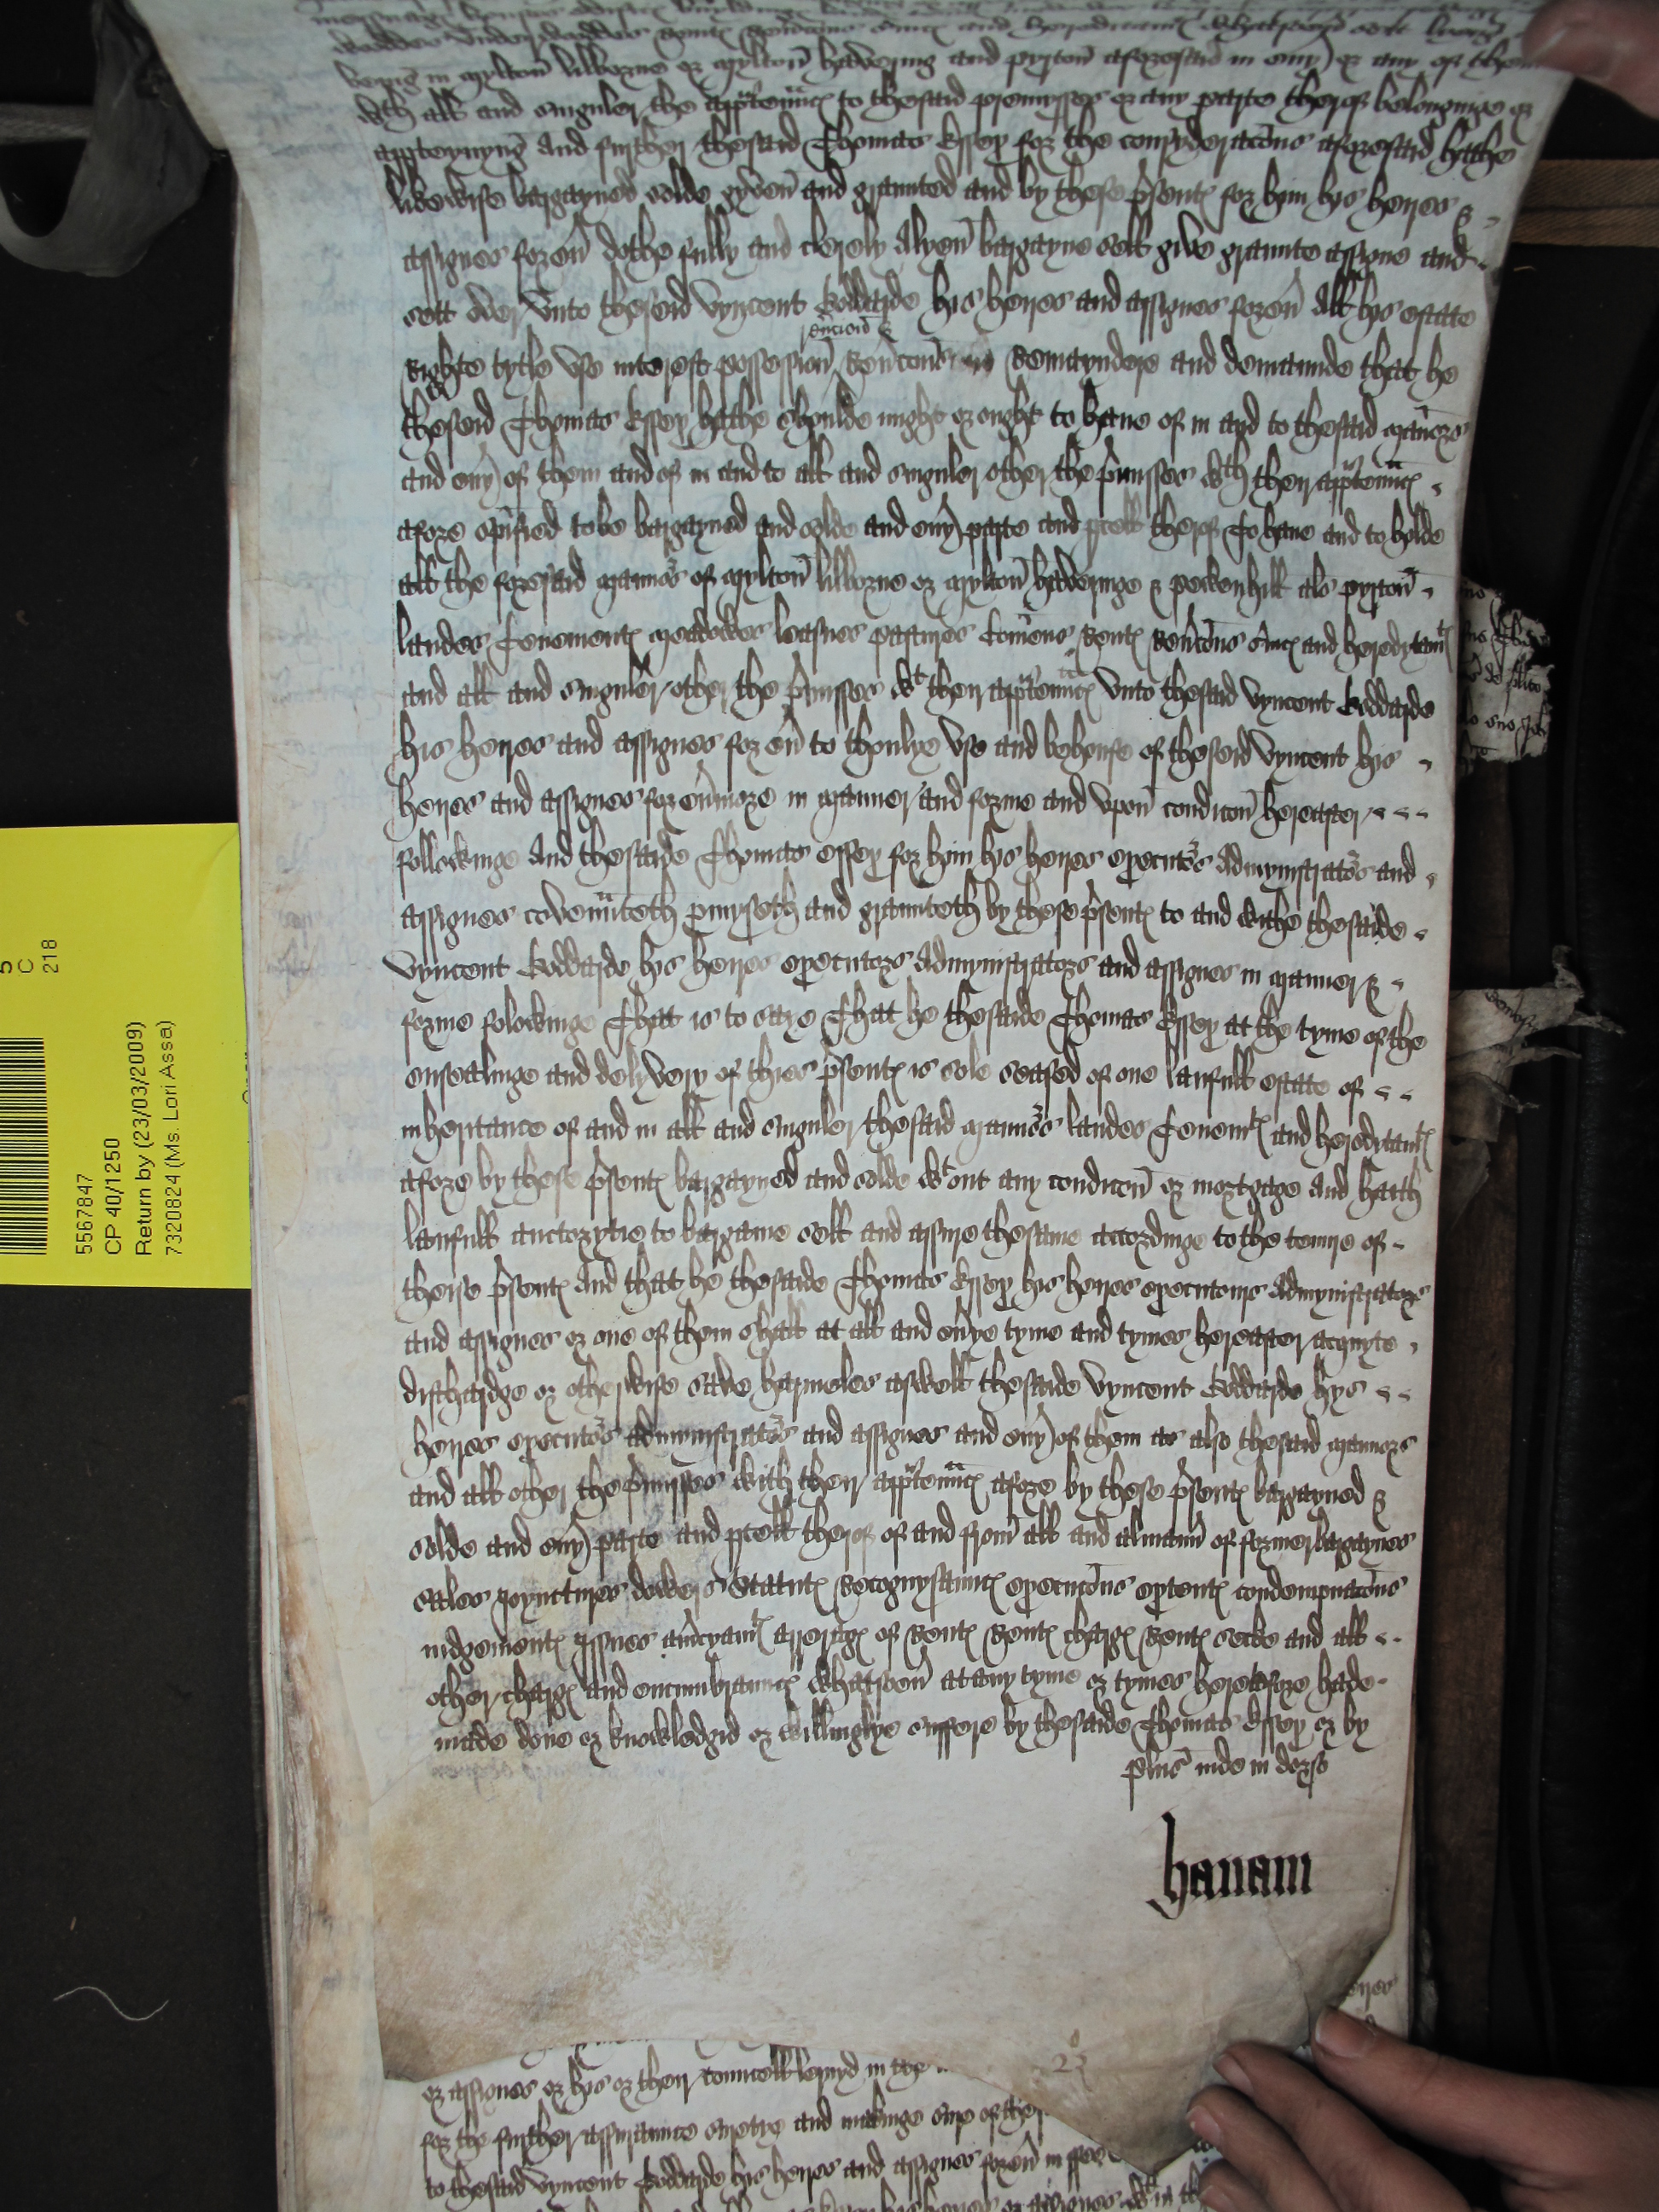 wooddes underwoddes rent(es) and hereditament(es) whatsoev(er) sett lyenge
beyng in Mylton Lilborne or Mylton Haveryng and Pyrton aforesaid in ev(er)y or any of them
w(i)th all and singuler the app(ur)ten(a)nc(es) to thesaid premysses or any parte therof belonginge or
apperteynyng And further thesaid Thomas Essex for the consyderac(i)ons aforesaid hathe
likewise bargayned solde gyven and graunted and by these p(re)sent(es) for hym his heires &
assignes forev(er) dothe fully and clerely Alyen bargayne sell give graunte assigne and
sett over unto thesaid Vyncent Goddarde his heires and assignes forev(er) All his estate
Righte tytle use interest possession rev(er)c(i)ons Remayndere and demaunde that he
thesaid Thomas Essex hathe shoulde might or ought to have of in and to thesaid Man(er)s
and ev(er)y of them and of in and to all and singuler other the p(re)misses w(i)th their app(ur)ten(a)nc(es)
afore sp(ec)ified to be bargayned and solde and ev(er)y parte and p(ar)cell therof To have and to holde
all the foresaid Manno(r)s of Mylton Lilborne or Mylton Haveringe & Peckenhill al(ia)s Pyrton
landes Tenement(es) Meadowes leasues pastures Com(m)ens Rent(es) Rev(er)c(i)ons s(er)vic(es) and heredytam(en)t(es)
and all and singuler other the p(re)misses w(i)t(h) their app(ur)ten(a)nc(es) unto thesaid Vyncent Goddarde
his heires and assignes for ev(er) to thonlye use and behouse of thesaid Vyncent his
heires and assignes for ev(er)more in Manner and forme and upon condic(i)on hereafter
followinge And thesaide Thomas Essex for hym his heires executo(r)s Admynistrato(r)s and
assignes coven(a)nteth p(ro)myseth and graunteth by these p(re)sent(es) to and withe thesaide
Vyncent Goddarde his heires executors Admynistrators and assignes in Manner &
forme folowinge That is to saye That he thesaide Thomas Essex at the tyme of the
ensealinge and delyvery of thies p(re)sent(es) is sole seased of one laufull estate of
inheritance of and in all and singuler thesaid Manno(r)s landes Tenem(en)t(es) and heredytam(en)t(es)
afore by these p(re)sent(es) bargayned and solde w(i)t(h)out any condic(i)on or mortgage And hath
laufull auctorytie to bargaine sell and assure thesame accordinge to the tenure of
theise p(re)sent(es) And that he thesaide Thomas Essex his heires executours Admynistrators
and assignes or one of them shall at all and ev(er)ye tyme and tymes hereafter acquyte
discharдge or otherwise save harmeles aswell thesaide Vyncent Goddarde hys
heires executo(r)s admynistrato(r)s and assignes and ev(er)y of them as also thesaid Mannors
and all other the p(re)misses with their app(ur)ten(a)nc(es) afore by these p(re)sent(es) bargayned &
solde and ev(er)y parte and p(ar)cell therof of and from all and almann(er) of former bargaynes
sales Joynctures dowers Statut(es) Recognysaunc(es) execuc(i)ons extent(es) condempnac(i)ons
iudgement(es) Issues am(er)cyam(en)t(es) arrerag(es) of Rent(es) Rent(es) charg(es) Rent(es) secke and all
other charg(es) and encumbraunc(es) whatsoev(er) at any tyme or tymes heretofore hade
made done or knowledgid or willinglye suffere by thesaide Thomas Essex or by
plus inde in dorso
hanam
or assignes or hys or their councell lernyd in the
for the further assuraunce suretye and makinge sure of the
to thesaid Vyncent Goddarde his heires and assignes forev(er) in fee
5
C
218
5567847
CP 40/1250
Return by (23/03/2009)
7320824 (Ms. Lori Assa)